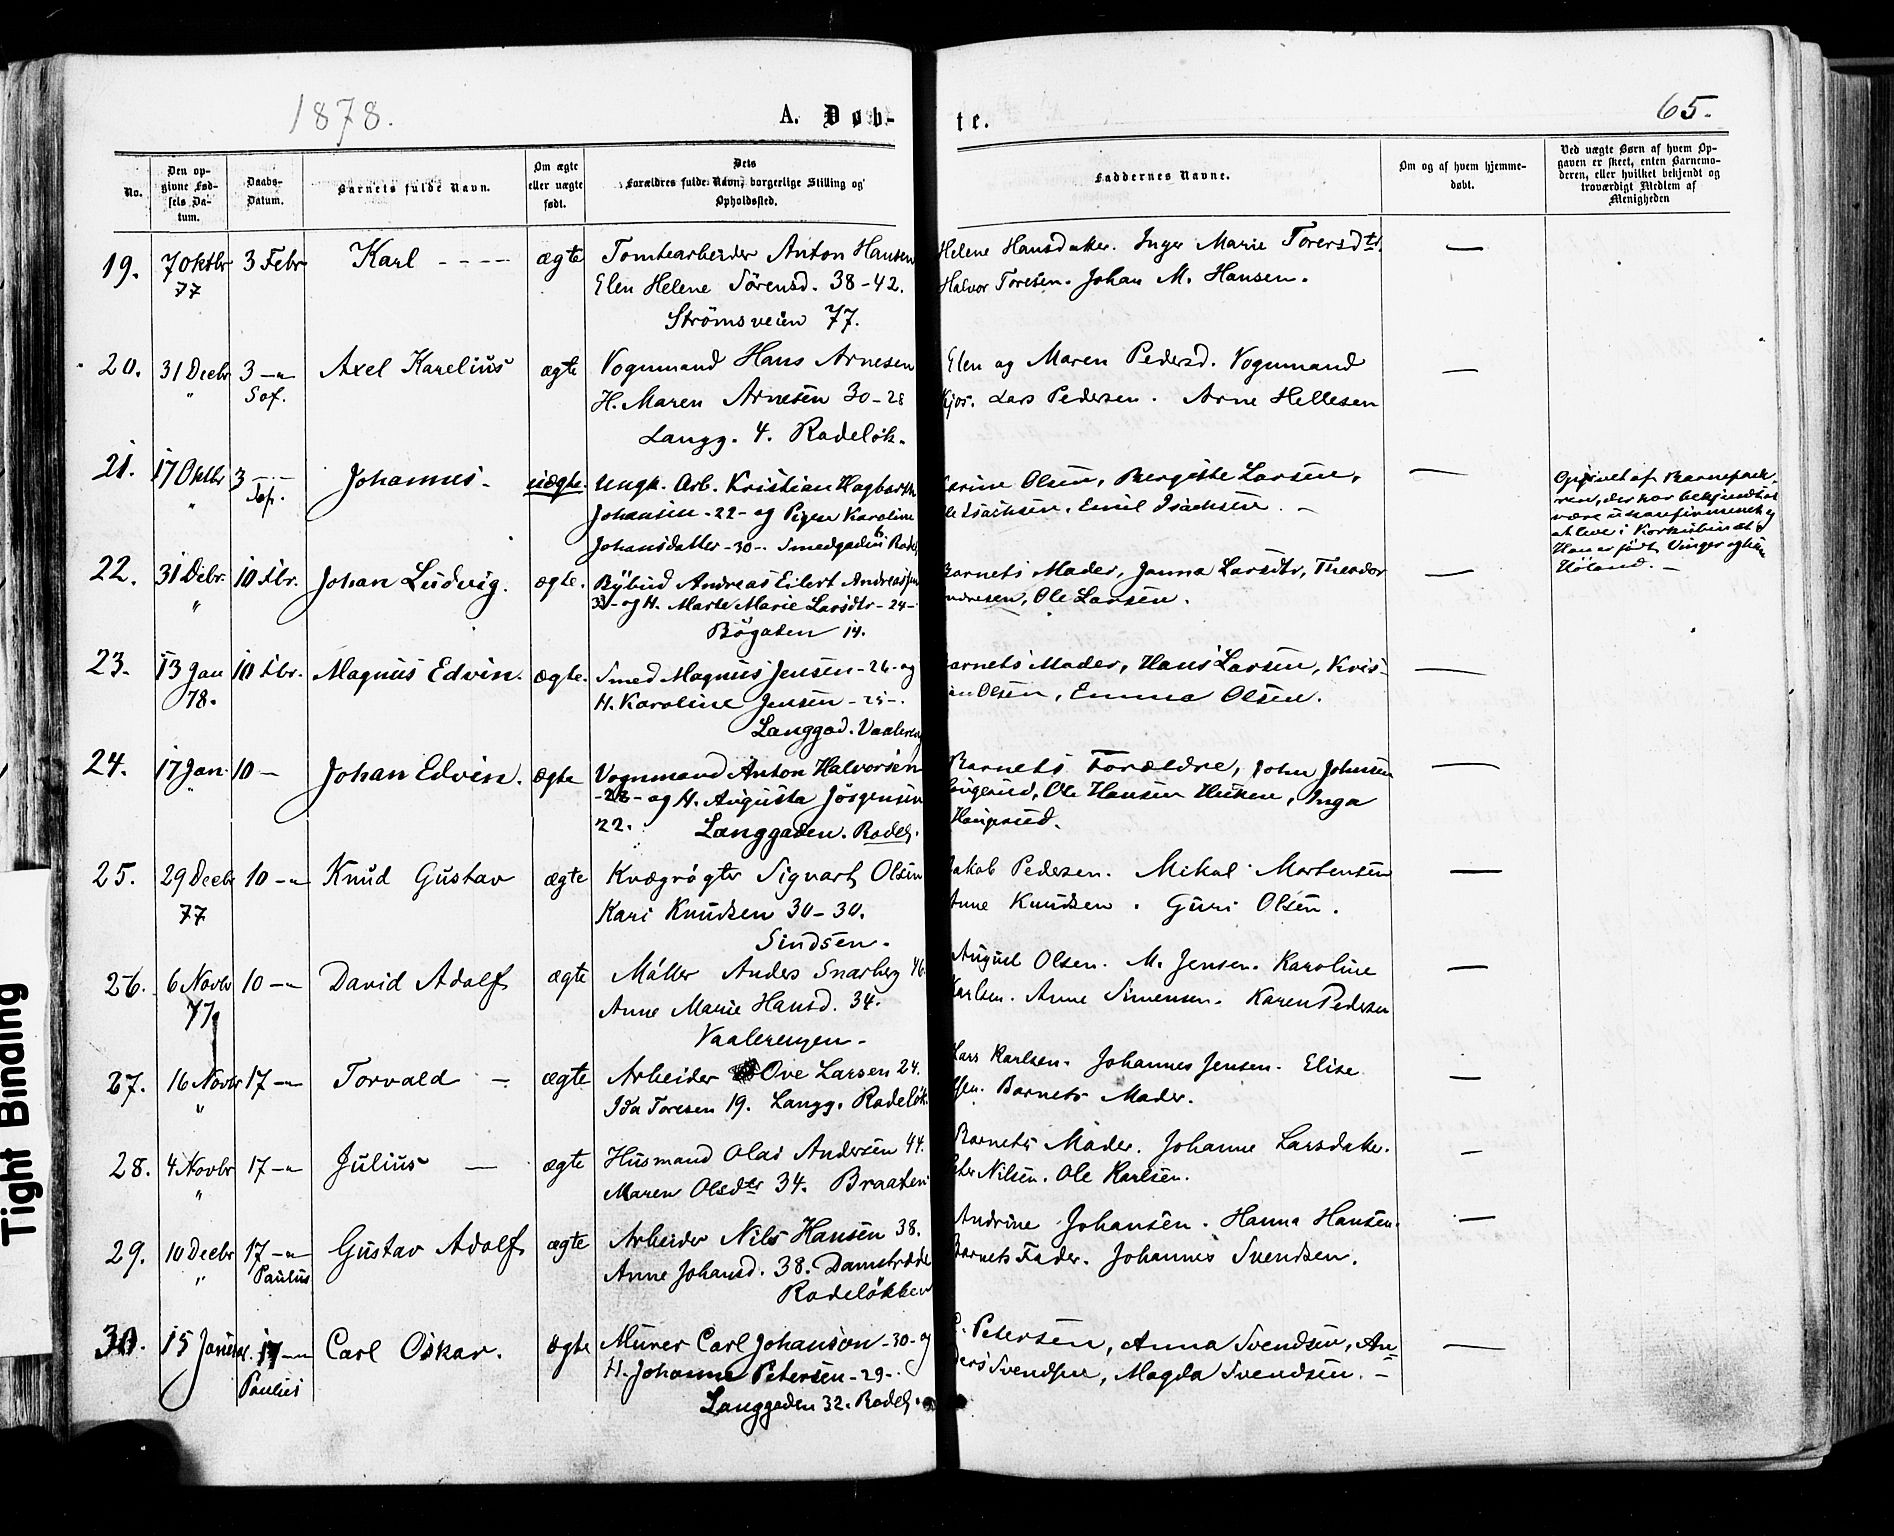 1878.
A. Døb-
te.
65.
No.
Den op-
givne Fød-
sels Da-
tum.
Daabs-
Datum.
Barnets fulde Navn.
Om ægte
eller uægte
født.
Dets
Forældres fulde Navn, borgerlige Stilling og
Opholdssted.
Faddernes Navne.
Om og af hvem hjemme-
døbt.
Ved uægte Børn af hvem Op-
gaven er skeet, enten Barnemo-
deren, eller hvilket bekjendt og
troværdigt Medlem af
Menigheden
19. 7 Oktbr 3 Febr Karl - - - - ægte Tomtearbeider Anton Hansen Helene Hansdater. Inger Marie Torersdtr. —
77 Elen Helene Sörensd. 38-42. Halvor Toresen. Johan M. Hansen.
Strömsveien 77.
20. 31 Decbr 3 -"- Axel Karelius ægte Vognmand Hans Arnesen Elen og Maren Pedersd. Vognmand —
" Sof. H. Maren Arnesen 30-28 Kjos. Lars Pedersen. Arne Hellesen
Langg. 4. Rodeløk.
21. 17 Oktbr 3 — Johannes. uægte. Ungk. Arb. Kristian Hagbarth Karine Olsen, Bergitte Larsen, — Opgivet af Barnefade-
" Sof. Johansen -22- og Pigen Karoline Ole Isachsen, Emil Isachsen. — ren, der har bekjendt at
Johansdatter -30-. Smedgaden Rodel. være ukonfirmeret og
at leve i Konkubinat.
Han er født Vinger og hun
Höland. —
22. 31 Dcbr. 10 Fbr. Johan Ludvig. ægte. Bybud Andreas Eilert Andreassen Barnets Moder, Janna Larsdtr, Theodor —
" 33- og H. Marte Marie Larsdtr -24- Andresen, Ole Larsen.
Bögaden 14.
23. 13 Jan 10 Fbr. Magnus Edvin. ægte. Smed Magnus Jensen -26- og Barnets Moder, Hans Larsen, Kris- —
78. H. Karoline Jensen -25-. tian Olsen, Emma Olsen.
Langgad. Vaalereng
24. 17 Jan. 10 — Johan Edvin. ægte Vognmand Anton Halvorsen Barnets Forældre, John Johnsen —
" -28- og H. Augusta Jörgensen Haugerud, Ole Hansen Huken, Inga
22. Langgaden. Rodel. Haugerud.
25. 29 Decbr 10 -"- Knud Gustav ægte Kvægrögter Sigvart Olsen Jakob Pedersen. Mikal Mortensen —
77 Kari Knudsen 30-30. Anne Knudsen. Guri Olsen.
Sindsen.
26. 6 Novbr 10 -"- David Adolf ægte Möller Anders Snarberg 46. August Olsen. M. Jensen. Karoline —
77 Anne Marie Hansd. 34. Karlsen. Anne Simensen. Karen Pedersen
Vaalerengen.
27. 16 Novbr 17 -"- Torvald — ægte Arbeider Ove Larsen 24. Lars Karlsen. Johannes Jensen. Elise —
" Ida Toresen 19. Langg. Rodeløk. Barnets Moder.
28. 4 Novbr 17 -"- Julius — ægte Husmand Olai Andersen 44. Barnets Moder. Johanne Larsdater. —
" Maren Olsdtr 34. Braaten Peter Nilsen. Ole Karlsen.
29. 10 Decbr 17 -"- Gustav Adolf ægte Arbeider Nils Hansen 38. Andrine Johansen. Hanna Hansen. —
" Paulus Anne Johansd. 38. Damstrædet Barnets Fader. Johannes Svendsen.
Rodeløkken
30. 15 Januar. 17 -"- Carl Oskar. ægte Murer Carl Johanson -30- og Petersen, Anna Svendsen, An- —
Paulus H. Johanna Petersen -29-. ders Svendsen, Magda Svendsen. —
Langgaden 32. Rodel.
Tight Binding